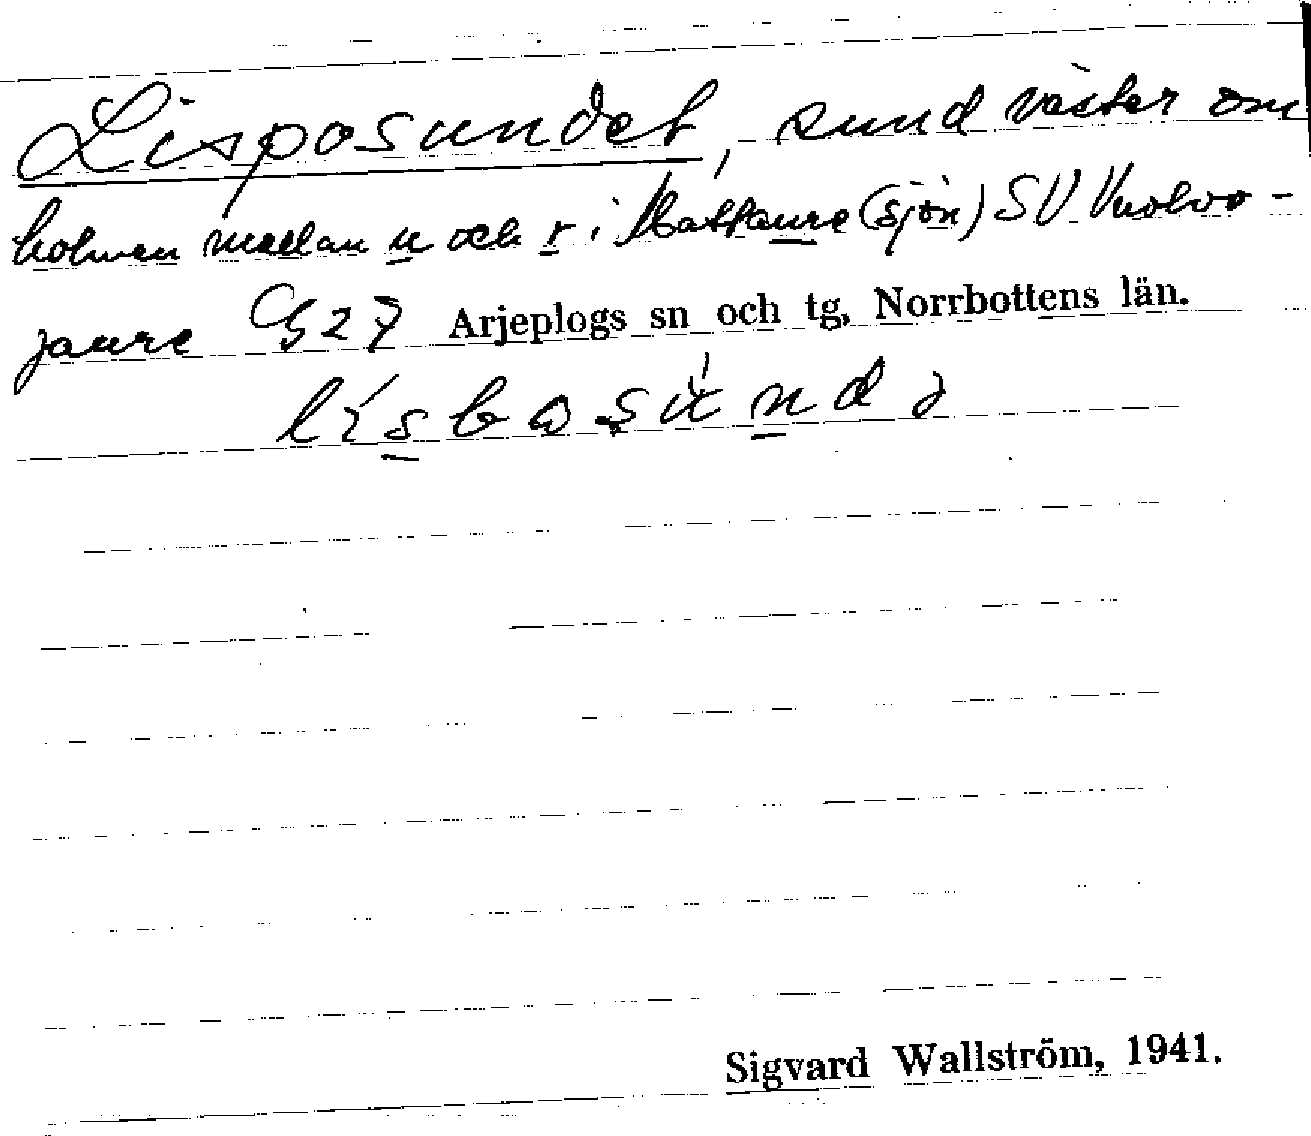 Lisposundet, sund väster om
holmen mellan u och r i Mattaure (sjön) SV
jaure G 27 Arjeplogs sn och tg, Norrbottens län.
Sigvard Wallström, 1941.